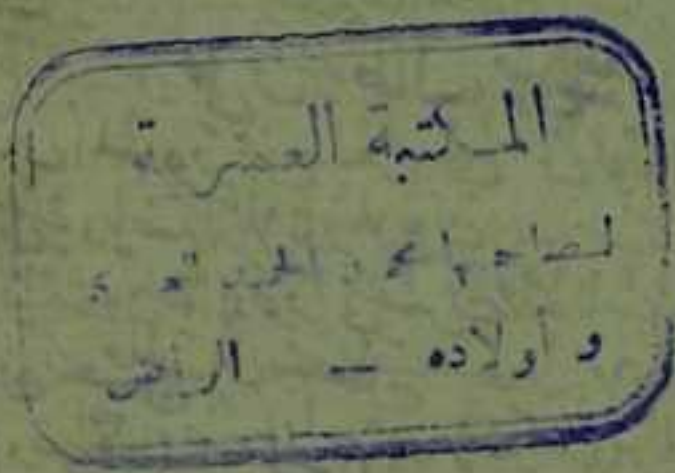 المكتبة العصرية
لصاحبها محمد
وأولاده — الرياض